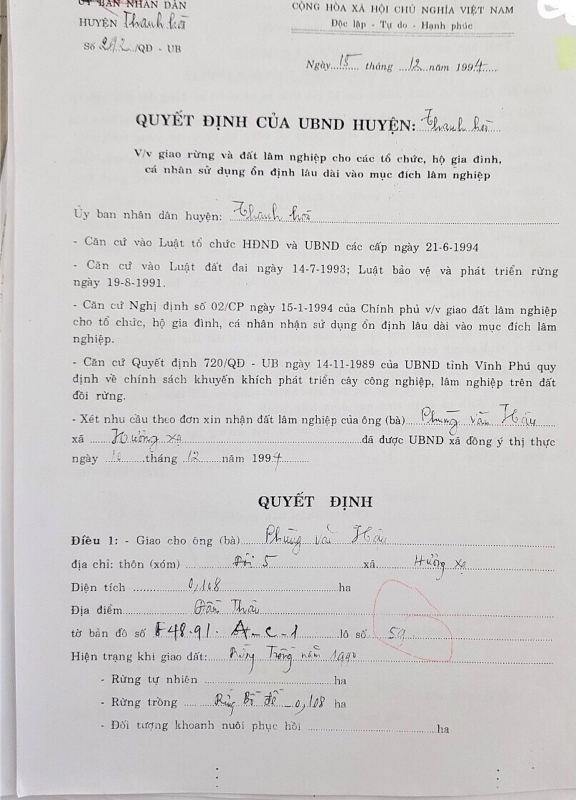 ỦY BAN NHÂN DÂN
HUYỆN Thanh hoà
Số 292/QĐ - UB
CỘNG HÒA XÃ HỘI CHỦ NGHĨA VIỆT NAM
Độc lập - Tự do - Hạnh phúc
Ngày 15 tháng 12 năm 1994
QUYẾT ĐỊNH CỦA UBND HUYỆN: Thanh hoà
V/v giao rừng và đất lâm nghiệp cho các tổ chức, hộ gia đình,
cá nhân sử dụng ổn định lâu dài vào mục đích lâm nghiệp
Ủy ban nhân dân huyện: Thanh hoà
- Căn cứ vào Luật tổ chức HĐND và UBND các cấp ngày 21-6-1994
- Căn cứ vào Luật đất đai ngày 14-7-1993; Luật bảo vệ và phát triển rừng
ngày 19-8-1991.
- Căn cứ Nghị định số 02/CP ngày 15-1-1994 của Chính phủ v/v giao đất lâm nghiệp
cho tổ chức, hộ gia đình, cá nhân nhận sử dụng ổn định lâu dài vào mục đích lâm
nghiệp.
- Căn cứ Quyết định 720/QĐ - UB ngày 14-11-1989 của UBND tỉnh Vĩnh Phú quy
định về chính sách khuyến khích phát triển cây công nghiệp, lâm nghiệp trên đất
đồi rừng.
- Xét nhu cầu theo đơn xin nhận đất lâm nghiệp của ông (bà) Phùng văn Hậu
xã Hương xạ đã được UBND xã đồng ý thị thực
ngày tháng 12 năm 1994
QUYẾT ĐỊNH
Điều 1: - Giao cho ông (bà) Phùng Văn Hậu
địa chỉ: thôn (xóm) Đội 5 xã Hương xạ
Diện tích 0,108 ha
Địa điểm
tờ bản đồ số F48.91. A-C-1 lô số 59
Hiện trạng khi giao đất: Rừng Trồng năm 1990
- Rừng tự nhiên ha
- Rừng trồng Rừng Bồ đề - 0,108 ha
- Đối tượng khoanh nuôi phục hồi ha